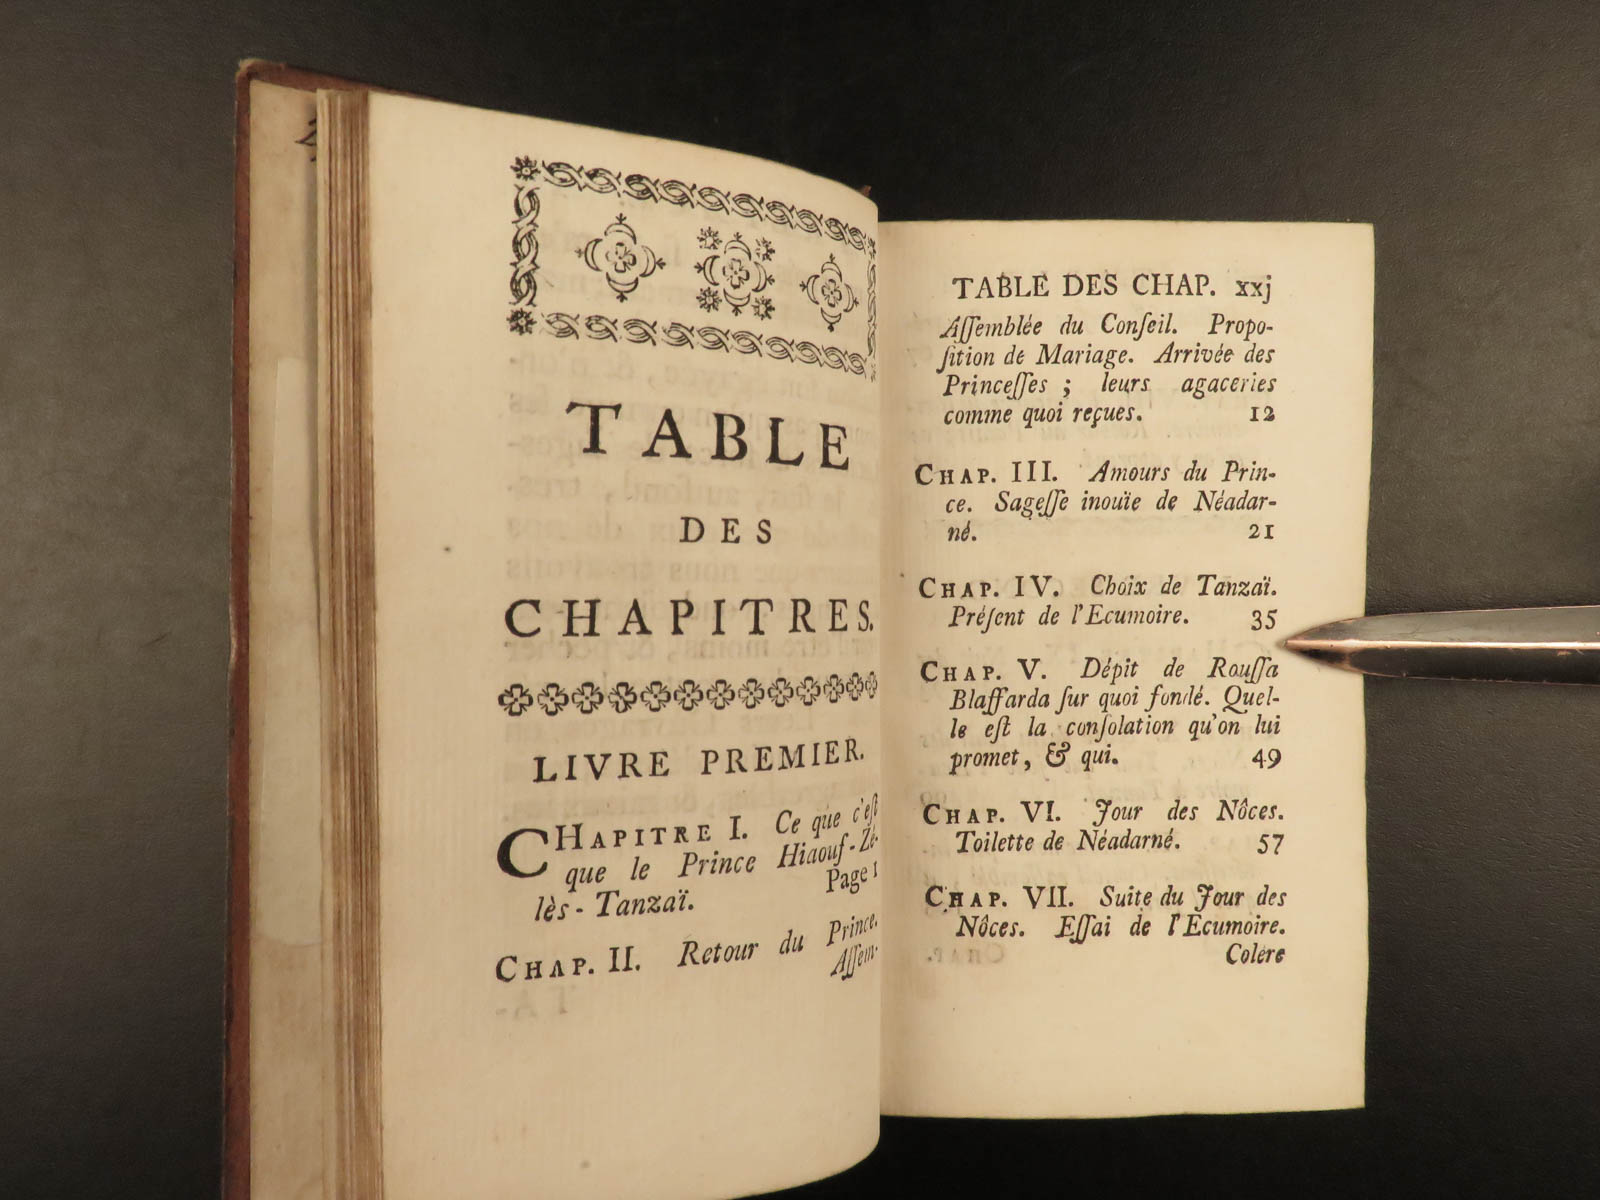 TABLE
DES
CHAPITRES.
LIVRE PREMIER.
CHAPITRE I. Ce que c'eſt
que le Prince Hiaouf-Zé-
lès-Tanzaï. Page 1
CHAP. II. Retour du Prince.
Aſſem-
TABLE DES CHAP. xxj
Aſſemblée du Conſeil. Propo-
ſition de Mariage. Arrivée des
Princeſſes ; leurs agaceries
comme quoi reçues. 12
CHAP. III. Amours du Prin-
ce. Sageſſe inouïe de Néadar-
né. 21
CHAP. IV. Choix de Tanzaï.
Préſent de l'Ecumoire. 35
CHAP. V. Dépit de Rouſſa
Blaffarda ſur quoi fondé. Quel-
le eſt la conſolation qu'on lui
promet, & qui. 49
CHAP. VI. Jour des Nôces.
Toilette de Néadarné. 57
CHAP. VII. Suite du Jour des
Nôces. Eſſai de l'Ecumoire.
Colére